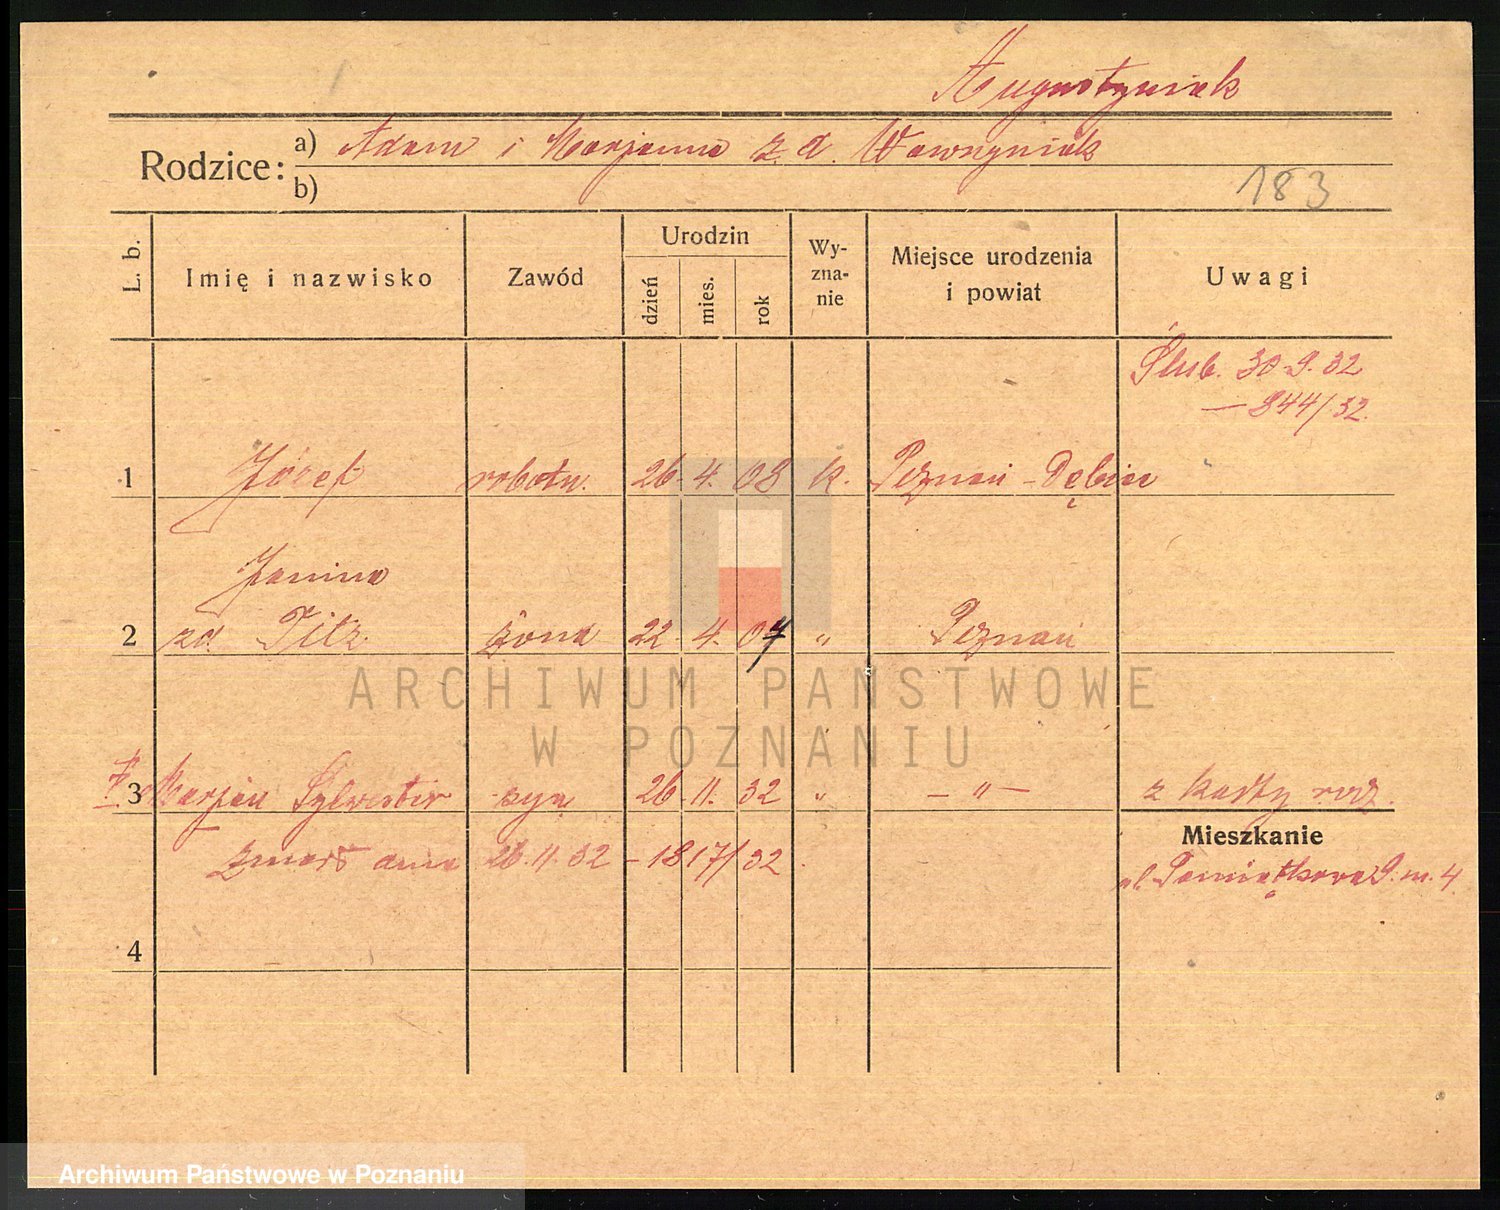 Augustyniak
Rodzice: a) Adam i Marjanna z d. Wawrzyniak
b)
183
L. b.
Imię i nazwisko
Zawód
Urodzin
dzień
mies.
rok
Wy-
zna-
nie
Miejsce urodzenia
i powiat
Uwagi
Ślub. 30.9.32
— 844/32.
1 Józef robotn. 26. 4. 08 k. Poznań - Dębiec
Janina
2 zd. Titz żona 22. 4. 07 " Poznań
ARCHIWUM PAŃSTWOWE
W POZNANIU
3 Marjan Sylwester syn 26. 11. 32 " — " — z karty
zmarł dnia 26.11.32 – 1817/32.
Mieszkanie
ul. Pamiątkowa 9. m. 4
4
Archiwum Państwowe w Poznaniu